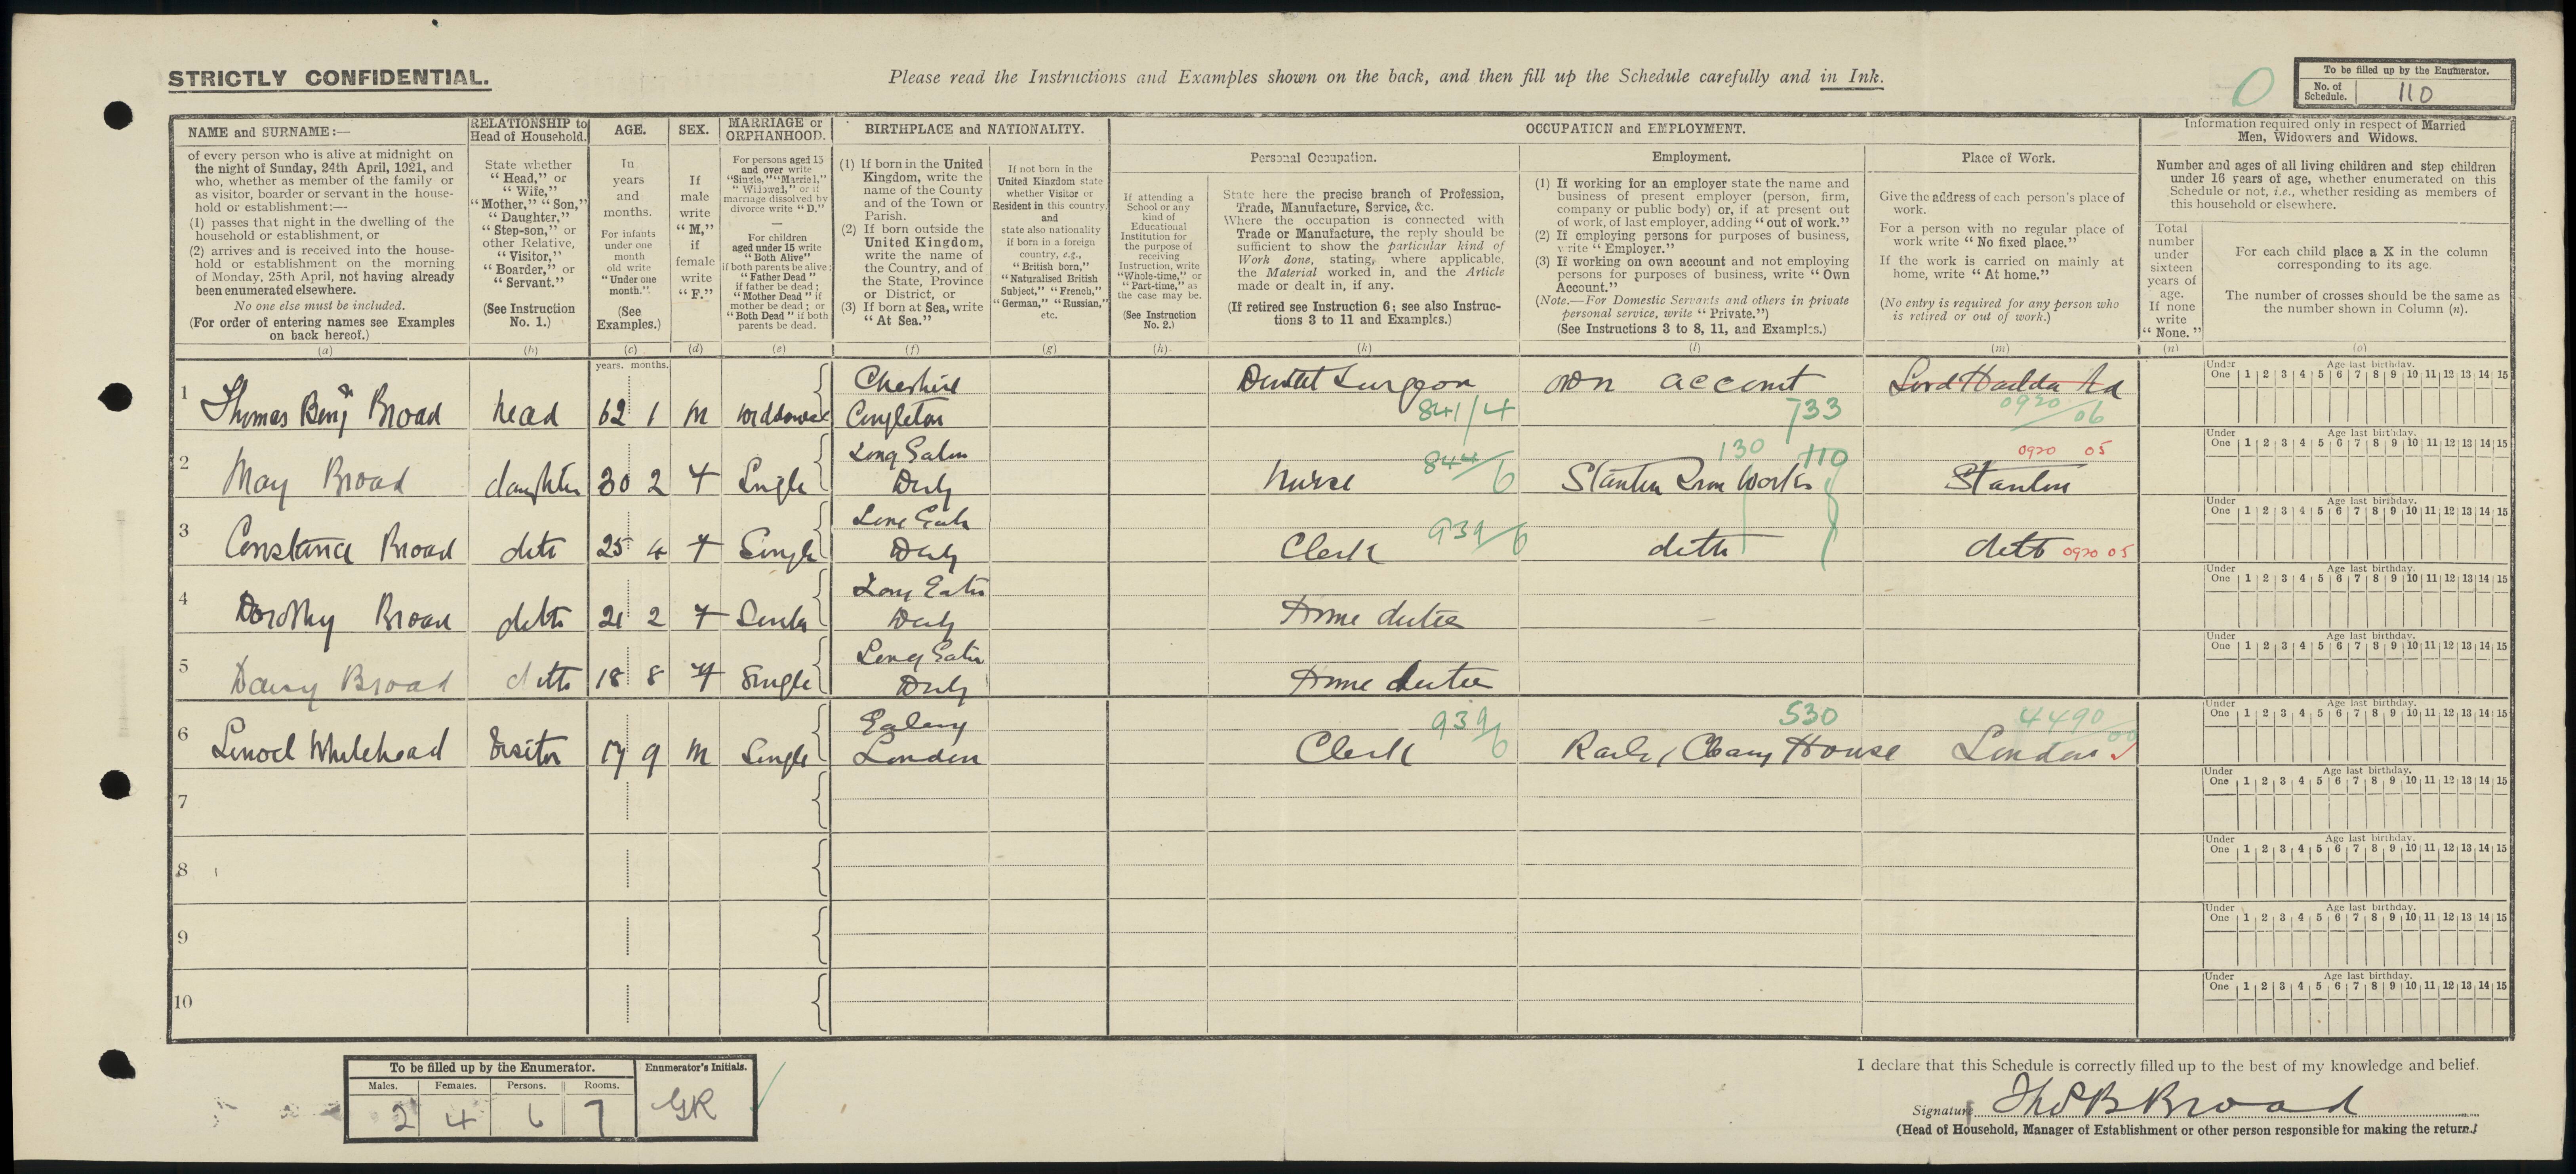 STRICTLY CONFIDENTIAL.
Please read the Instructions and Examples shown on the back, and then fill up the Schedule carefully and in Ink.
0
To be filled up by the Enumerator.
No. of Schedule. 110
NAME and SURNAME:—
of every person who is alive at midnight on
the night of Sunday, 24th April, 1921, and
who, whether as member of the family or
as visitor, boarder or servant in the house-
hold or establishment:—
(1) passes that night in the dwelling of the
household or establishment, or
(2) arrives and is received into the house-
hold or establishment on the morning
of Monday, 25th April, not having already
been enumerated elsewhere.
No one else must be included.
(For order of entering names see Examples
on back hereof.)
(a)
RELATIONSHIP to
Head of Household.
State whether
"Head," or
"Wife,"
"Mother," "Son,"
"Daughter,"
"Step-son," or
other Relative,
"Visitor,"
"Boarder," or
"Servant."
(See Instruction
No. 1.)
(b)
AGE.
In
years
and
months.
For infants
under one
month
old write
"Under one
month."
(See
Examples.)
(c)
SEX.
If
male
write
"M,"
if
female
write
"F."
(d)
MARRIAGE or
ORPHANHOOD.
For persons aged 15
and over write
"Single," "Married,"
"Widowed," or if
marriage dissolved by
divorce write "D."
—
For children
aged under 15 write
"Both Alive"
if both parents be alive;
"Father Dead"
if father be dead;
"Mother Dead" if
mother be dead; or
"Both Dead" if both
parents be dead.
(e)
BIRTHPLACE and NATIONALITY.
(1) If born in the United
Kingdom, write the
name of the County
and of the Town or
Parish.
(2) If born outside the
United Kingdom,
write the name of
the Country, and of
the State, Province
or District, or
(3) If born at Sea, write
"At Sea."
(f)
If not born in the
United Kingdom state
whether Visitor or
Resident in this country,
and
state also nationality
if born in a foreign
country, e.g.,
"British born,"
"Naturalised British
Subject," "French,"
"German," "Russian,"
etc.
(g)
OCCUPATION and EMPLOYMENT.
If attending a
School or any
kind of
Educational
Institution for
the purpose of
receiving
Instruction, write
"Whole-time," or
"Part-time," as
the case may be.
(See Instruction
No. 2.)
(h)
Personal Occupation.
State here the precise branch of Profession,
Trade, Manufacture, Service, &c.
Where the occupation is connected with
Trade or Manufacture, the reply should be
sufficient to show the particular kind of
Work done, stating, where applicable,
the Material worked in, and the Article
made or dealt in, if any.
(If retired see Instruction 6; see also Instruc-
tions 3 to 11 and Examples.)
(k)
Employment.
(1) If working for an employer state the name and
business of present employer (person, firm,
company or public body) or, if at present out
of work, of last employer, adding "out of work."
(2) If employing persons for purposes of business,
write "Employer."
(3) If working on own account and not employing
persons for purposes of business, write "Own
Account."
(Note.—For Domestic Servants and others in private
personal service, write "Private.")
(See Instructions 3 to 8, 11, and Examples.)
(l)
Place of Work.
Give the address of each person's place of
work.
For a person with no regular place of
work write "No fixed place."
If the work is carried on mainly at
home, write "At home."
(No entry is required for any person who
is retired or out of work.)
(m)
Information required only in respect of Married
Men, Widowers and Widows.
Number and ages of all living children and step children
under 16 years of age, whether enumerated on this
Schedule or not, i.e., whether residing as members of
this household or elsewhere.
Total
number
under
sixteen
years of
age.
If none
write
"None."
(n)
For each child place a X in the column
corresponding to its age.
The number of crosses should be the same as
the number shown in Column (n).
(o)
years. months.
1 Thomas Benj Broad head 62 1 M widdower Cheshire Congleton Dentist Surgeon 841/4 own account 733 0920/06
Under One Age last birthday. 1 2 3 4 5 6 7 8 9 10 11 12 13 14 15
2 May Broad daughter 30 2 F Single Long Eaton Derby Nurse 844/6 Stanton Iron Works 130 110 Stanton 0920 05
Under One Age last birthday. 1 2 3 4 5 6 7 8 9 10 11 12 13 14 15
3 Constance Broad ditto 25 4 F Single Long Eaton Derby Clerk 939/6 ditto ditto 0920 05
Under One Age last birthday. 1 2 3 4 5 6 7 8 9 10 11 12 13 14 15
4 Dorothy Broad ditto 21 2 F Single Long Eaton Derby Home duties
Under One Age last birthday. 1 2 3 4 5 6 7 8 9 10 11 12 13 14 15
5 Daisy Broad ditto 18 8 F Single Long Eaton Derby Home duties
Under One Age last birthday. 1 2 3 4 5 6 7 8 9 10 11 12 13 14 15
6 Whitehead Visitor 17 9 M Single Ealing London Clerk 939/6 House 530 London 4490/00
Under One Age last birthday. 1 2 3 4 5 6 7 8 9 10 11 12 13 14 15
7
Under One Age last birthday. 1 2 3 4 5 6 7 8 9 10 11 12 13 14 15
8
Under One Age last birthday. 1 2 3 4 5 6 7 8 9 10 11 12 13 14 15
9
Under One Age last birthday. 1 2 3 4 5 6 7 8 9 10 11 12 13 14 15
10
Under One Age last birthday. 1 2 3 4 5 6 7 8 9 10 11 12 13 14 15
To be filled up by the Enumerator.
Males. Females. Persons. Rooms.
2 4 6 7
Enumerator's Initials.
GR
I declare that this Schedule is correctly filled up to the best of my knowledge and belief.
Signature Thos B Broad
(Head of Household, Manager of Establishment or other person responsible for making the return.)